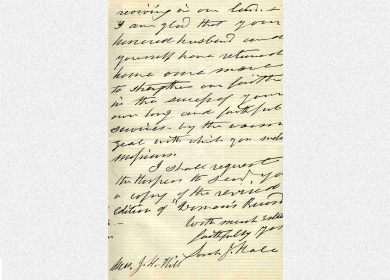 reviving in our land. &
I am glad that your
honored husband and
yourself have returned
home once more
to strengthen our faith
in the success of your
own long and faithful
services by the warm
zeal with which you seek
missions.
I shall request
the Harpers to send you
a copy of the revised
edition of "Woman's Record
With much esteem
faithfully yrs
Sarah J. Hale
Mrs. J. H. Hill